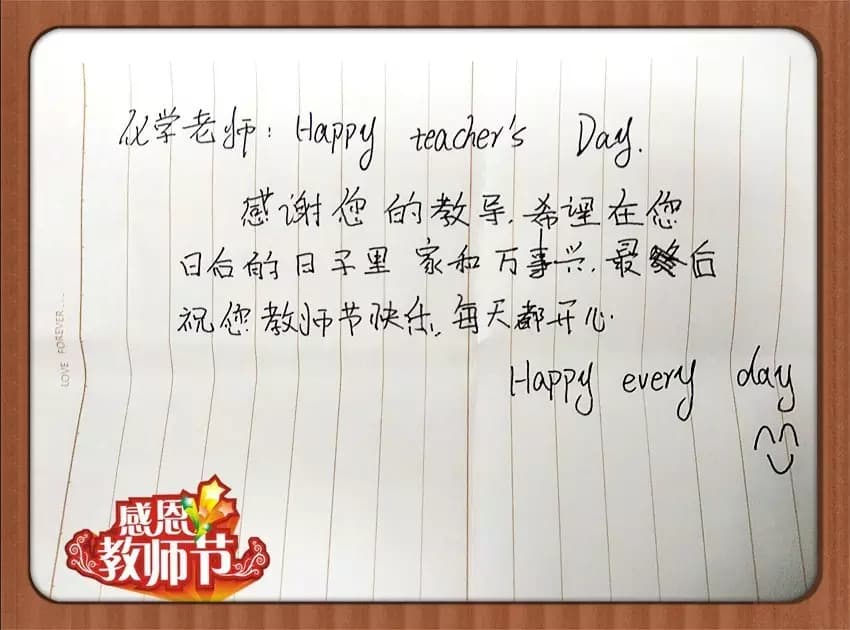 化学老师: Happy teacher's Day.
感谢您的教导,希望在您
日后的日子里 家和万事兴,最后
祝您教师节快乐,每天都开心.
Happy every day
LOVE FOREVER...
感恩
教师节